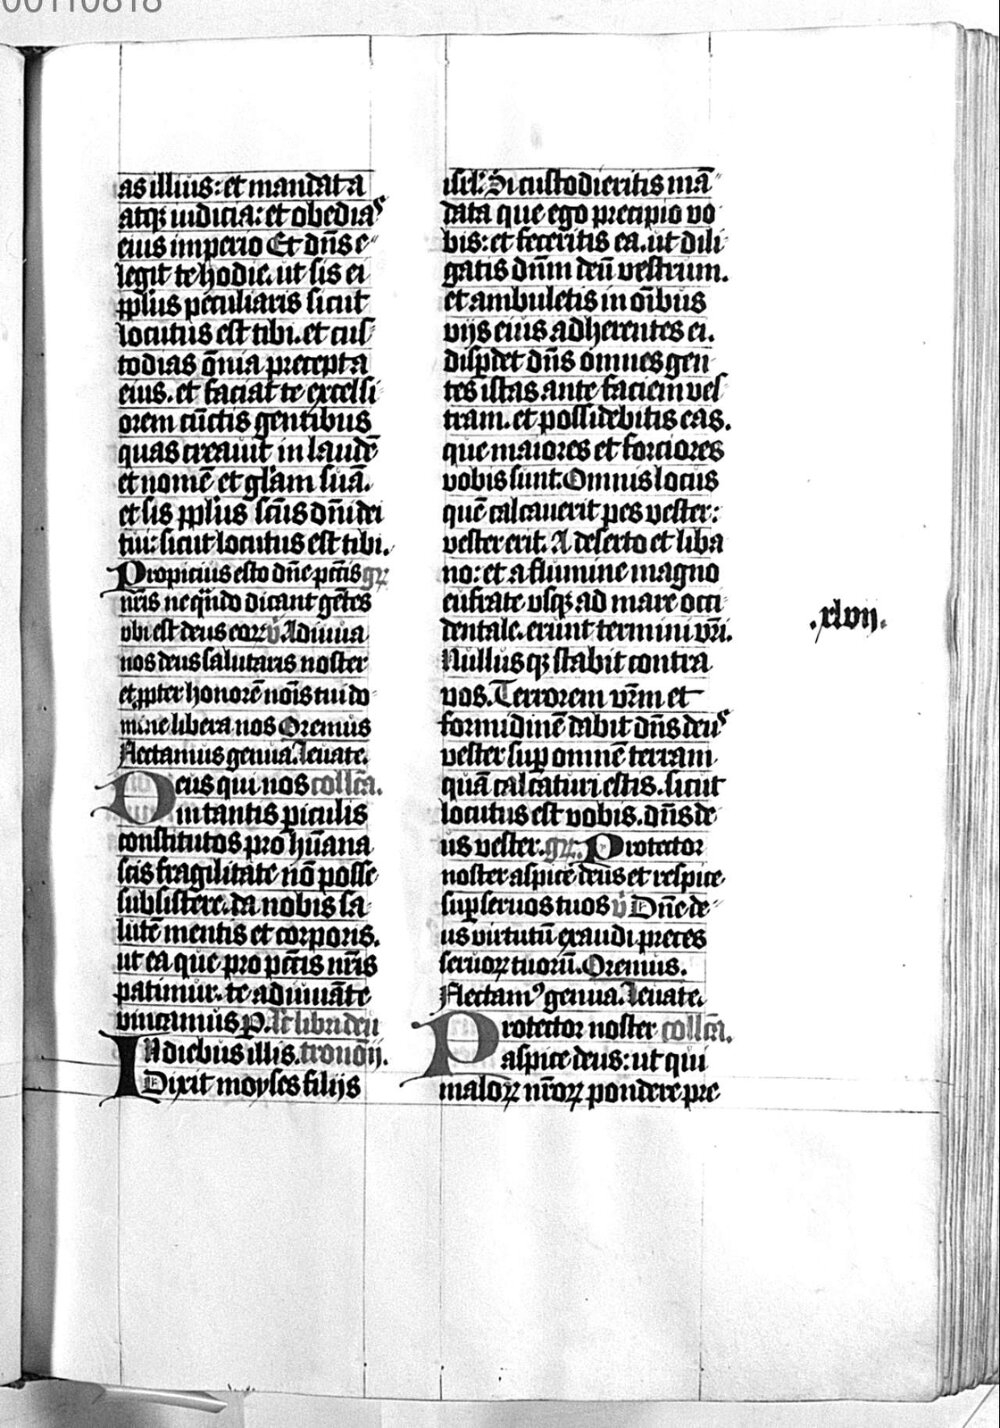 00110818
as illius: et mandata
atqꝫ iudicia: et obediaˢ
eius imperio Et dn̄s e
legit te hodie. ut sis ei
pplūs peculiaris sicut
locutus est tibi. et cus
todias om̄ia precepta
eius. et faciat te excelsi
orem cūctis gentibus
quas creauit in laudē
et nomē et glam̄ suā.
et sis pplūs scūs dn̄i dei
tui: sicut locutus est tibi.
Propicius esto dn̄e pctīs gr̄:
nr̄is ne qn̄do dicant gētes
vbi est deus eoꝝ v̄ Adiuua
nos deus salutaris noster
et ꝓpter honorē noīs tui do
mine libera nos Oremus
Flectamus genua. leuate.
Deus qui nos collcā.
in tantis piculis
constitutos pro hūana
scis fragilitate nō posse
subsistere. da nobis sa
lutē mentis et corporis.
ut ea que pro pctīs nr̄is
patimur. te adiuuāte
vincamus P. lc̄ libri deu
In diebus illis. tronōij.
Dixit moyses filijs
isrl̄: Si custodieritis mā
data que ego precipio vo
bis: et feceritis ea. ut dili
gatis dn̄m deū vestrum.
et ambuletis in oībus
vijs eius adherentes ei.
dispdet dn̄s omnes gen
tes istas ante faciem ves
tram. et possidebitis eas.
que maiores et forciores
vobis sunt. Omnis locus
quē calcauerit pes vester:
vester erit. A deserto et liba
no: et a flumine magno
eufrate vsqꝫ ad mare occi
dentale. erunt termini vr̄i.
.xlvij.
Nullus qꝫ stabit contra
vos. Terrorem vr̄m et
formidinē dabit dn̄s deuˢ
vester sup omnē terram
quā calcaturi estis. sicut
locutus est vobis. dn̄s de
us vester. gr̄. Protector
noster aspice deus et respice
sup seruos tuos v̄ Dn̄e de
us virtutū exaudi preces
seruoꝝ tuorū. Oremus.
Flectamꝰ genua. leuate.
Protector noster collcā.
aspice deus: ut qui
maloꝝ nr̄oꝝ pondere pre